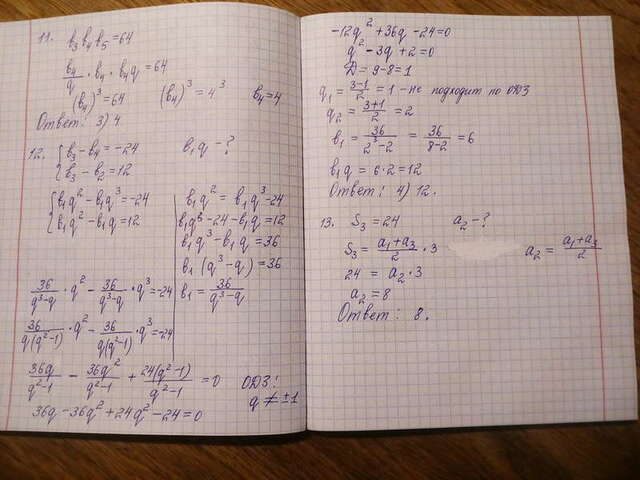 11. b₃b₄b₅=64
b₄/q · b₄ · b₄q = 64
(b₄)³=64 (b₄)³=4³ b₄=4
Ответ: 3) 4
12. {b₃-b₄=-24 b₁q-?
b₃-b₂=12
{b₁q²-b₁q³=-24
b₁q²-b₁q=12
b₁q²=b₁q³-24
b₁q³-24-b₁q=12
b₁q³-b₁q=36
b₁(q³-q)=36
b₁=36/(q³-q)
36/(q³-q) · q² - 36/(q³-q) · q³=-24
36/(q(q²-1)) · q² - 36/(q(q²-1)) · q³=-24
36q/(q²-1) - 36q²/(q²-1) + 24(q²-1)/(q²-1) = 0 ОДЗ!
q≠±1
36q-36q²+24q²-24=0
-12q²+36q-24=0
q²-3q+2=0
D=9-8=1
q₁=(3-1)/2=1-не подходит по ОДЗ
q₂=(3+1)/2=2
b₁=36/(2³-2)=36/(8-2)=6
b₁q=6·2=12
Ответ: 4) 12.
13. S₃=24 a₂-?
S₃=(a₁+a₃)/2 · 3 a₂=(a₁+a₃)/2
24=a₂·3
a₂=8
Ответ: 8.